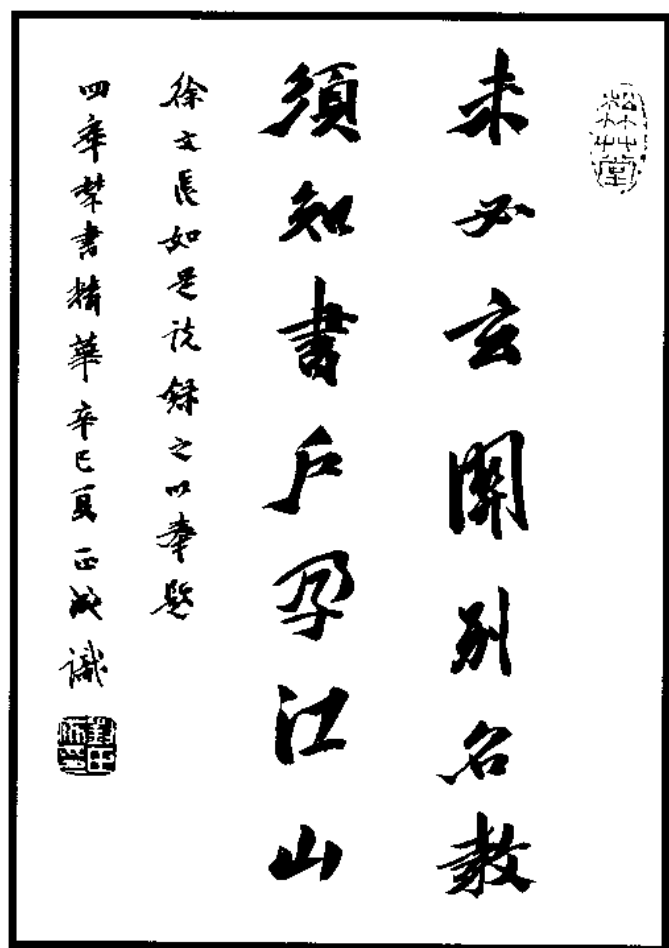 松竹堂
未必玄關別名教
須知書户孕江山
徐文長如是說錄之以奉題
四庫禁書精華辛巳夏正成識